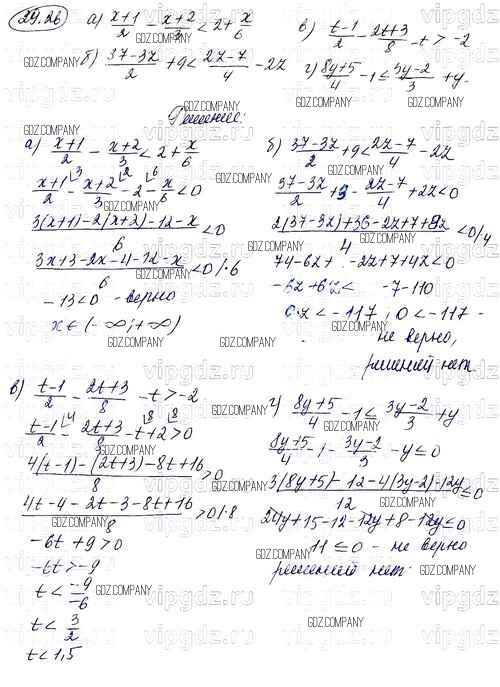 29.26 а) (x+1)/2 - (x+2)/3 < 2 + x/6
в) (t-1)/2 - (2t+3)/8 - t > -2
б) (37-3z)/2 + 9 < (2z-7)/4 - 2z
г) (8y+5)/4 - 1 ≤ (3y-2)/3 + y
Решение:
а) (x+1)/2 - (x+2)/3 < 2 + x/6
(x+1)/2 - (x+2)/3 - 2 - x/6 < 0
(3(x+1)-2(x+2)-12-x)/6 < 0
(3x+3-2x-4-12-x)/6 < 0 /·6
-13<0 - верно
x∈(-∞;+∞)
б) (37-3z)/2 + 9 < (2z-7)/4 - 2z
(37-3z)/2 + 9 - (2z-7)/4 + 2z < 0
(2(37-3z)+36-2z+7+8z)/4 < 0 /·4
74-6z+ -2z+7+4z<0
-6z+6z< -7-110
6z<-117, 0<-117 -
не верно,
решений нет
в) (t-1)/2 - (2t+3)/8 - t > -2
(t-1)/2 - (2t+3)/8 - t + 2 > 0
(4(t-1)-(2t+3)-8t+16)/8 > 0
(4t-4-2t-3-8t+16)/8 > 0 /·8
-6t+9>0
-6t>-9
t < (-9)/(-6)
t < 3/2
t<1,5
г) (8y+5)/4 - 1 ≤ (3y-2)/3 + y
(8y+5)/4 - 1 - (3y-2)/3 - y ≤ 0
(3(8y+5)-12-4(3y-2)-12y)/12 ≤ 0
24y+15-12-12y+8-12y≤0
11≤0 - не верно
решений нет.
GDZ.COMPANY
vipgdz.ru